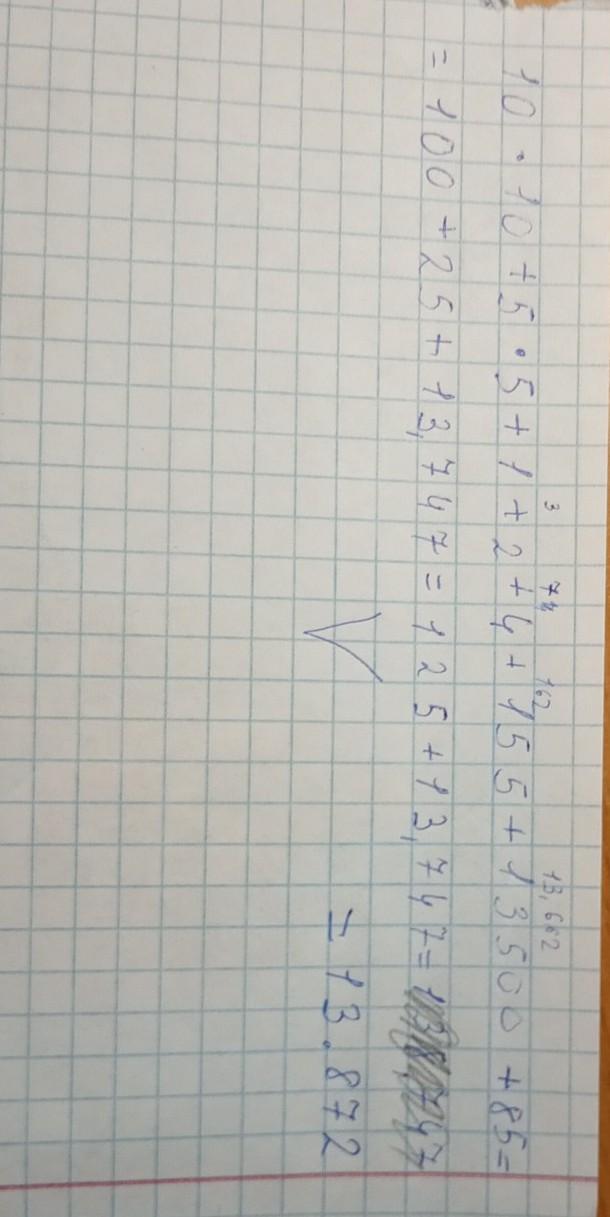 3 7 162 13,662
10 · 10 + 5 · 5 + 1 + 2 + 4 + 155 + 13500 + 85 =
= 100 + 25 + 13,747 = 125 + 13,747 =
= 13.872